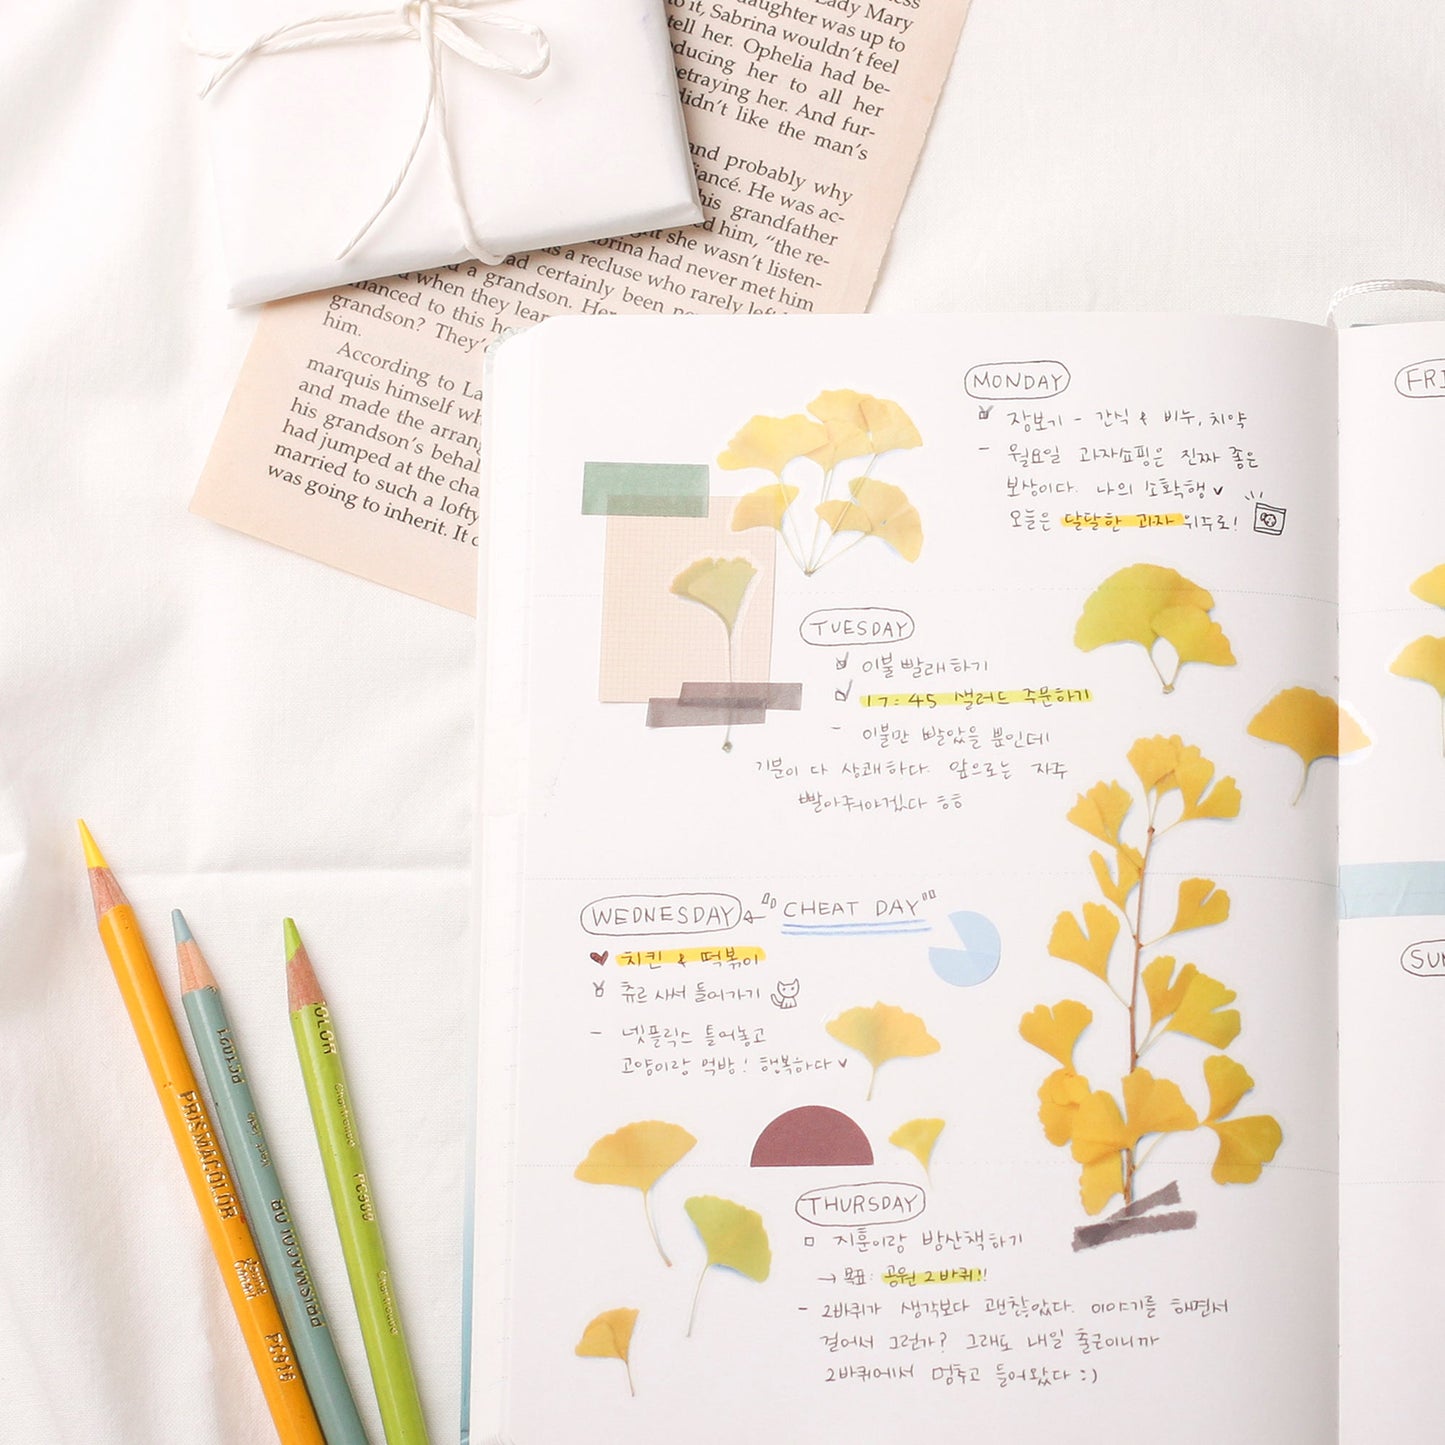 Lady Mary
daughter was up to
to it, Sabrina wouldn't feel
tell her. Ophelia had be-
ducing her to all her
etraying her. And fur-
didn't like the man's
and probably why
iancé. He was ac-
his grandfather
ed him, "the re-
she wasn't listen-
brina had never met him
as a recluse who rarely
ad certainly been
d a grandson. Her
when they lear
hanced to this
grandson? They'd
him.
According to La
marquis himself wh
and made the arrang
his grandson's behal
had jumped at the cha
married to such a lofty
was going to inherit. It
MONDAY
장보기 - 간식 & 비누, 치약
- 월요일 과자쇼핑은 진짜 좋은
보상이다. 나의 소확행
오늘은 달달한 과자 위주로!
TUESDAY
이불 빨래하기
17:45 샐러드 주문하기
- 이불만 빨았을 뿐인데
기분이 다 상쾌하다. 앞으로는 자주
빨아줘야겠다 ㅎㅎ
WEDNESDAY ← "CHEAT DAY"
치킨 & 떡볶이
츄르 사서 들어가기
- 넷플릭스 틀어놓고
고양이랑 먹방! 행복하다
THURSDAY
지훈이랑 밤산책하기
→ 목표: 공원 2바퀴!!
- 2바퀴가 생각보다 괜찮았다. 이야기를 하면서
걸어서 그런가? 그래도 내일 출근이니까
2바퀴에서 멈추고 들어왔다 :)
FRI
SUN
PRISMACOLOR
PC916
PRISMACOLOR
PC989